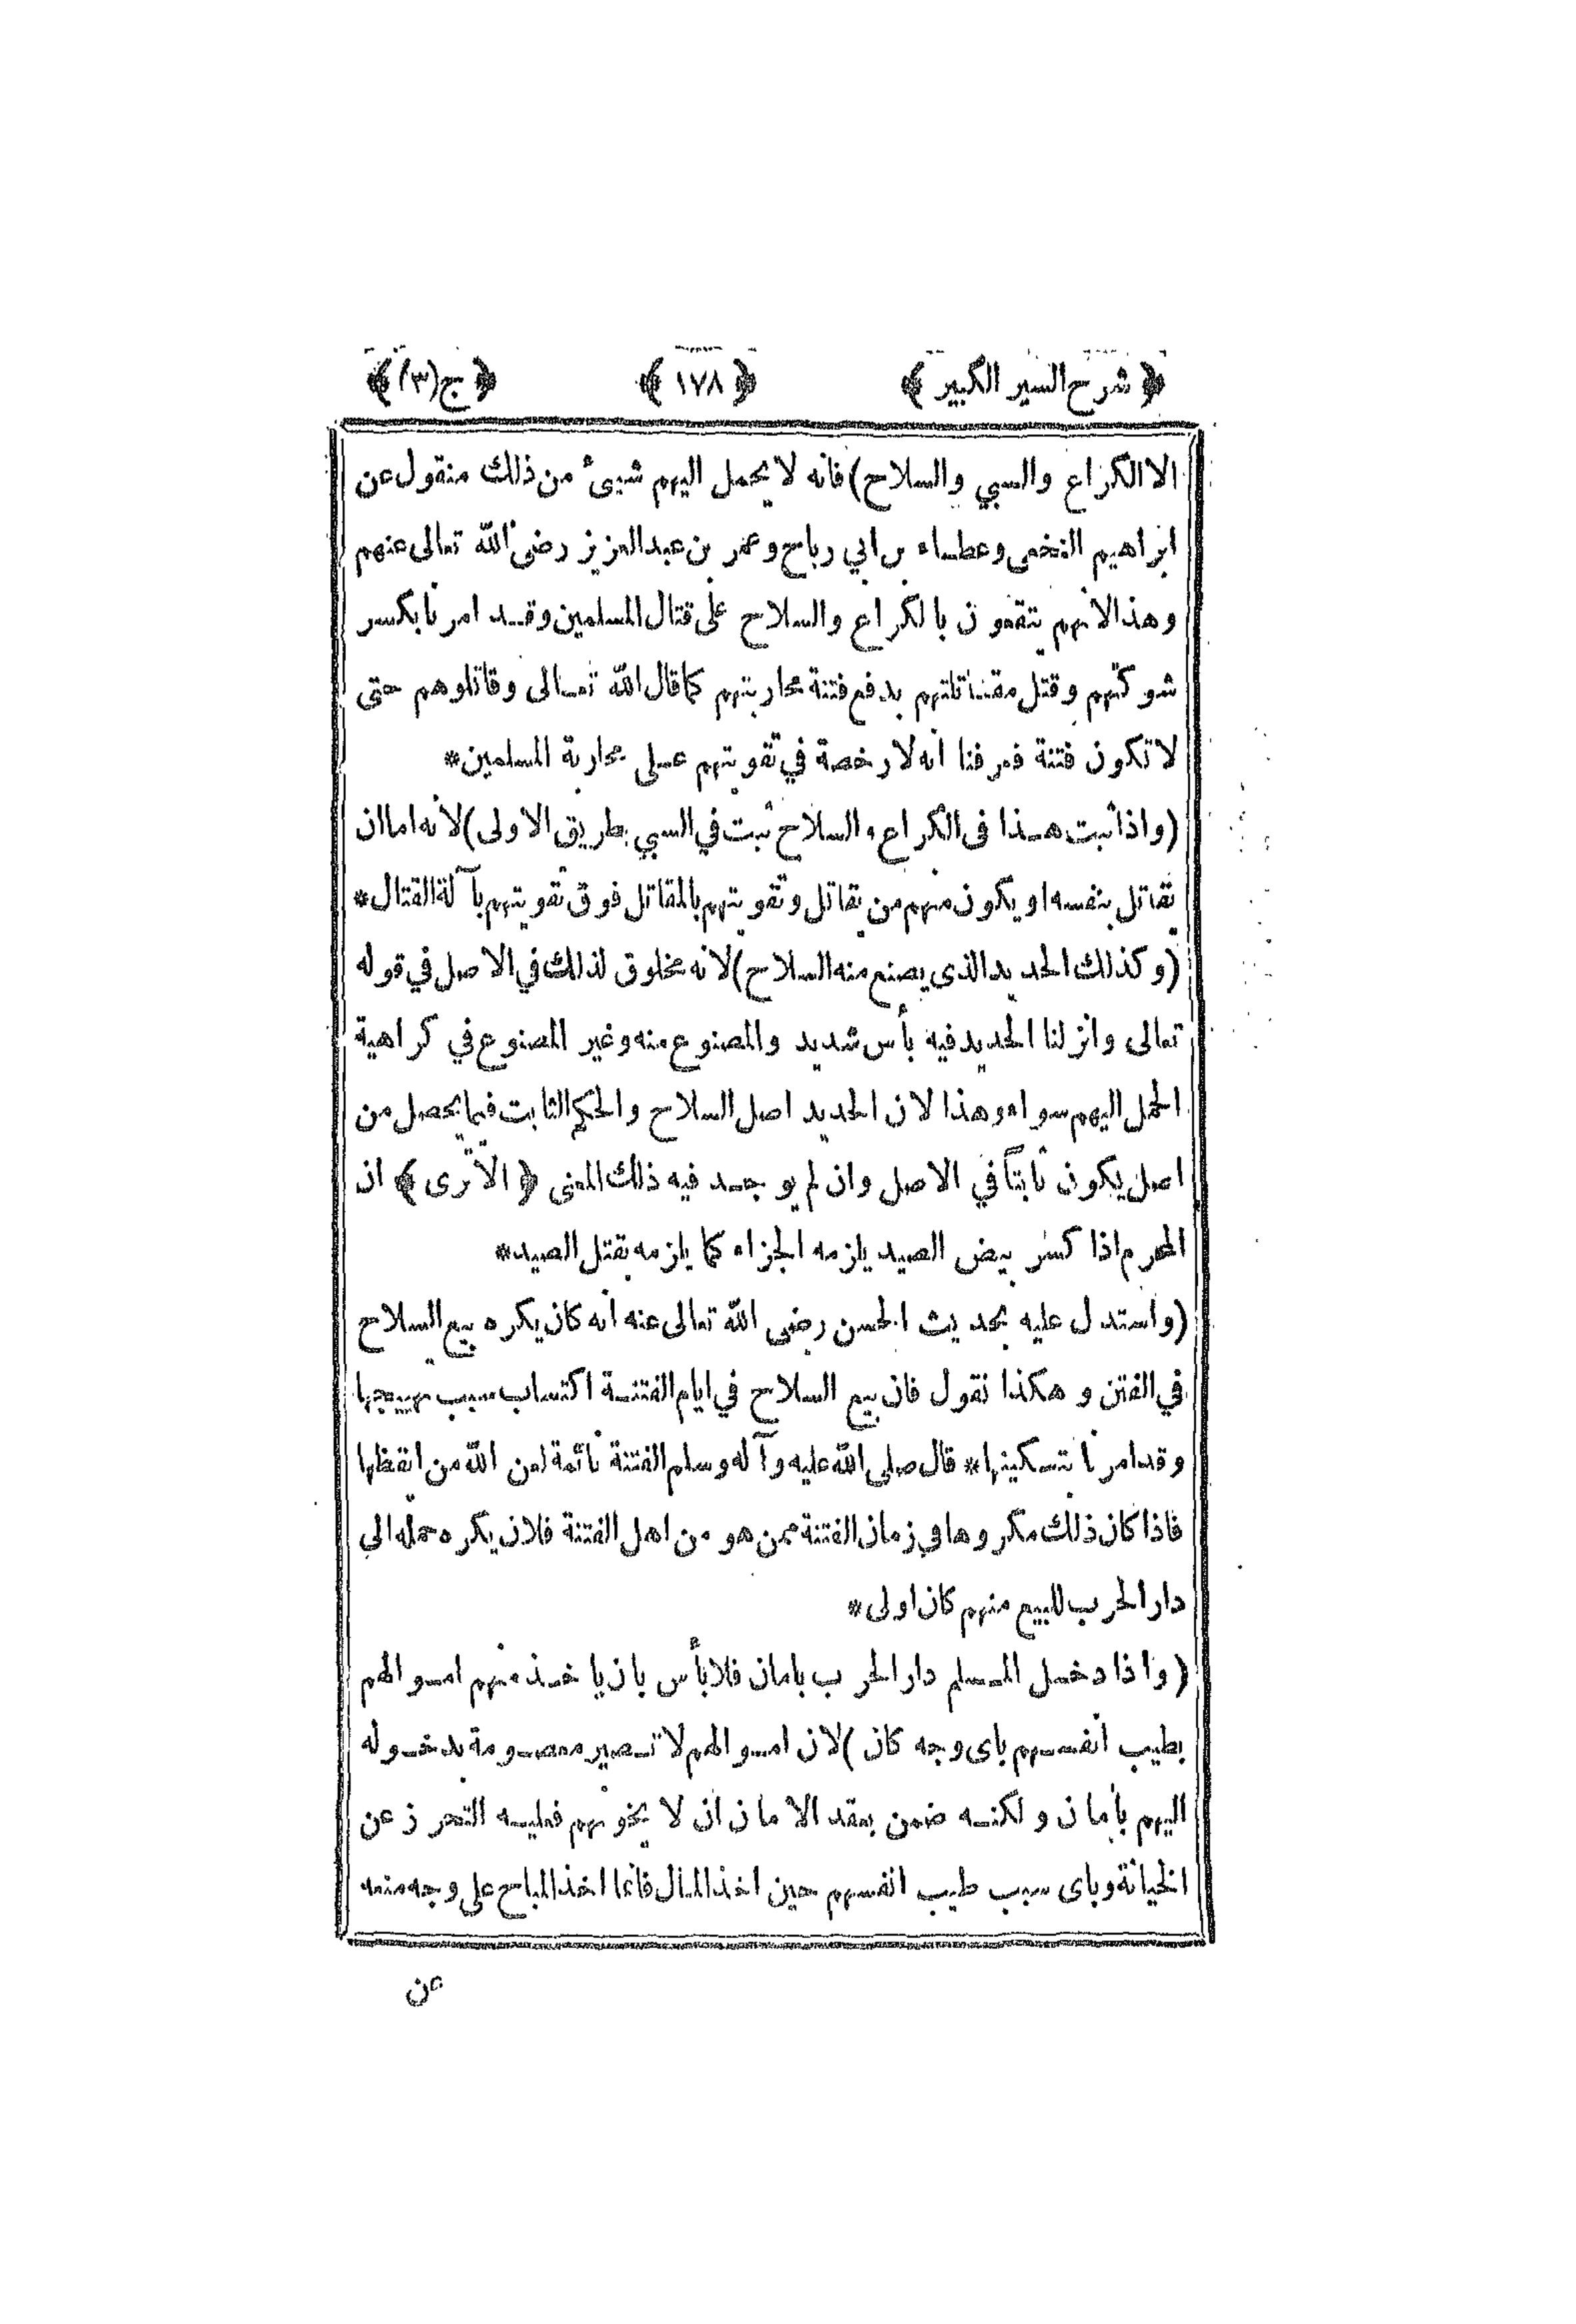 ﴿ شرح السير الكبير ﴾ ﴿ ١٧٨ ﴾ ﴿ ج(٣) ﴾
الا الكراع والسبي والسلاح) فانه لا يحمل اليهم شيئ من ذلك منقول عن
ابراهيم النخعي وعطاء بن ابي رباح وعمر بن عبد العزيز رضى الله تعالى عنهم
وهذا لانهم يتقوون بالكراع والسلاح على قتال المسلمين وقد امرنا بكسر
شوكتهم وقتل مقاتلتهم بدفع فتنة محاربتهم كما قال الله تعالى وقاتلوهم حتى
لا تكون فتنة فعرفنا انه لا رخصة في تقويتهم على محاربة المسلمين*
(واذا ثبت هذا فى الكراع والسلاح ثبت في السبي بطريق الاولى) لانه اما ان
تقاتل بنفسه او يكون منهم من يقاتل وتقويتهم بالمقاتل فوق تقويتهم بآلة القتال*
(وكذلك الحديد الذى يصنع منه السلاح) لانه مخلوق لذلك في الاصل في قوله
تعالى وانزلنا الحديد فيه بأس شديد والمصنوع منه وغير المصنوع في كراهية
الحمل اليهم سواء وهذا لان الحديد اصل السلاح والحكم الثابت فيما يحصل من
اصل يكون ثابتاً في الاصل وان لم يوجد فيه ذلك المعنى ﴿ الا ترى ﴾ ان
المحرم اذا كسر بيض الصيد يلزمه الجزاء كما يلزمه بقتل الصيد*
(واستدل عليه بحديث الحسن رضى الله تعالى عنه انه كان يكره بيع السلاح
في الفتن وهكذا نقول فان بيع السلاح في ايام الفتنة اكتساب سبب تهييجها
وقد امرنا بتسكينها* قال صلى الله عليه وآله وسلم الفتنة نائمة لعن الله من ايقظها
فاذا كان ذلك مكروها في زمان الفتنة ممن هو من اهل الفتنة فلان يكره حمله الى
دار الحرب للبيع منهم كان اولى*
(واذا دخل المسلم دار الحرب بامان فلا بأس بان ياخذ منهم اموالهم
بطيب انفسهم باى وجه كان) لان اموالهم لا تصير معصومة بدخوله
اليهم بأمان ولكنه ضمن بعقد الامان ان لا يخونهم فعليه التحرز عن
الخيانة وباى سبب طيب انفسهم حين اخذ المال فانما اخذ المباح على وجه منعه
عن